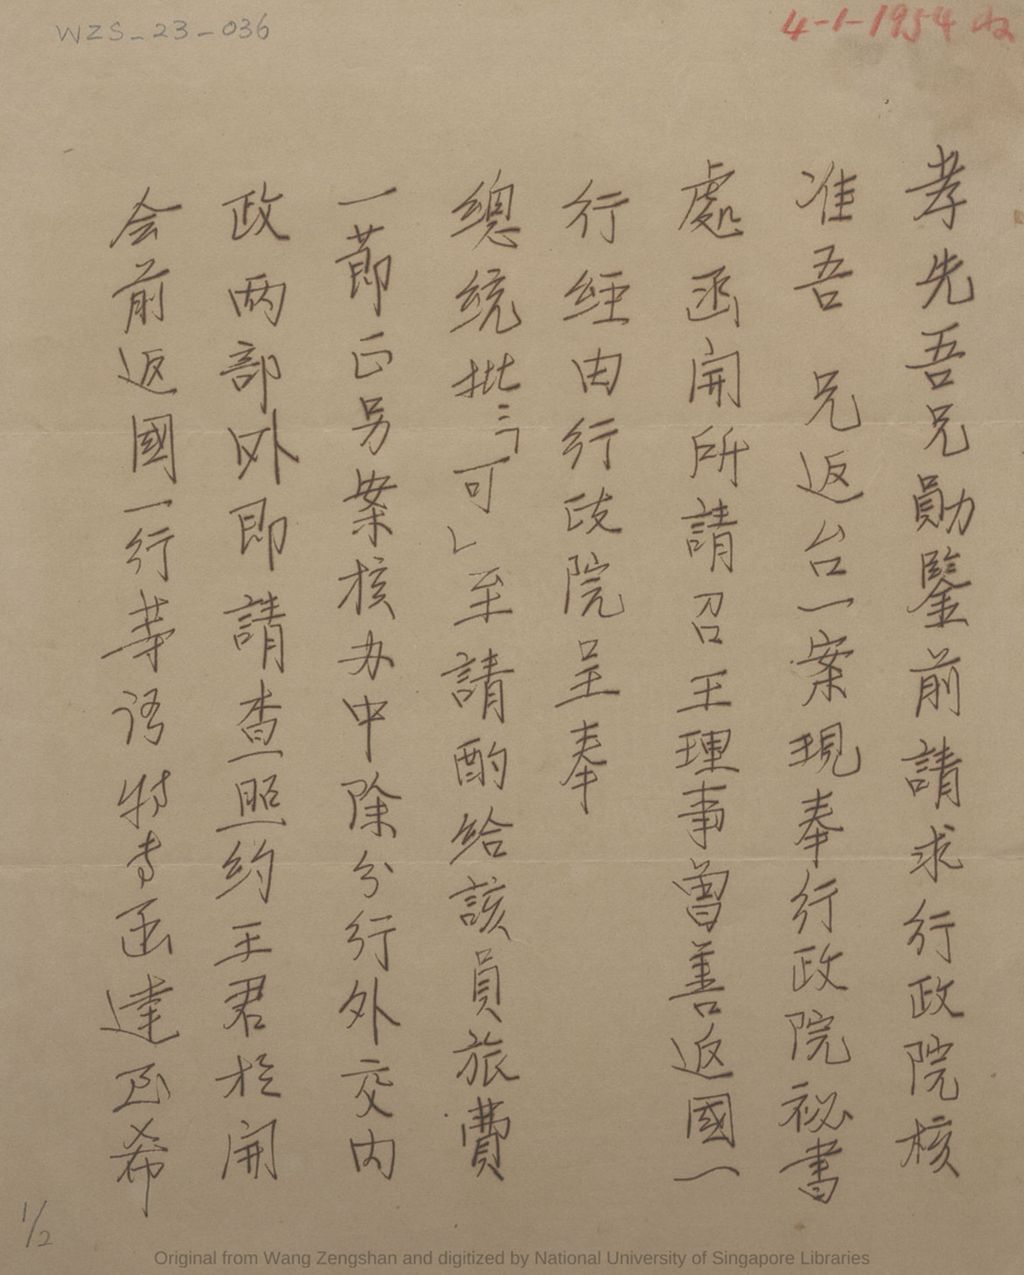 WZS-23-036
4-1-1954 收
孝先吾兄勛鑒前請求行政院核
准吾 兄返台一案現奉行政院祕書
處函開所請召王理事曾善返國一
行經由行政院呈奉
總統批示「可」至請酌給該員旅費
一節正另案核办中除分行外交內
政两部外即請查照約王君於開
会前返國一行等语特专函達至希
1/2
Original from Wang Zengshan and digitized by National University of Singapore Libraries